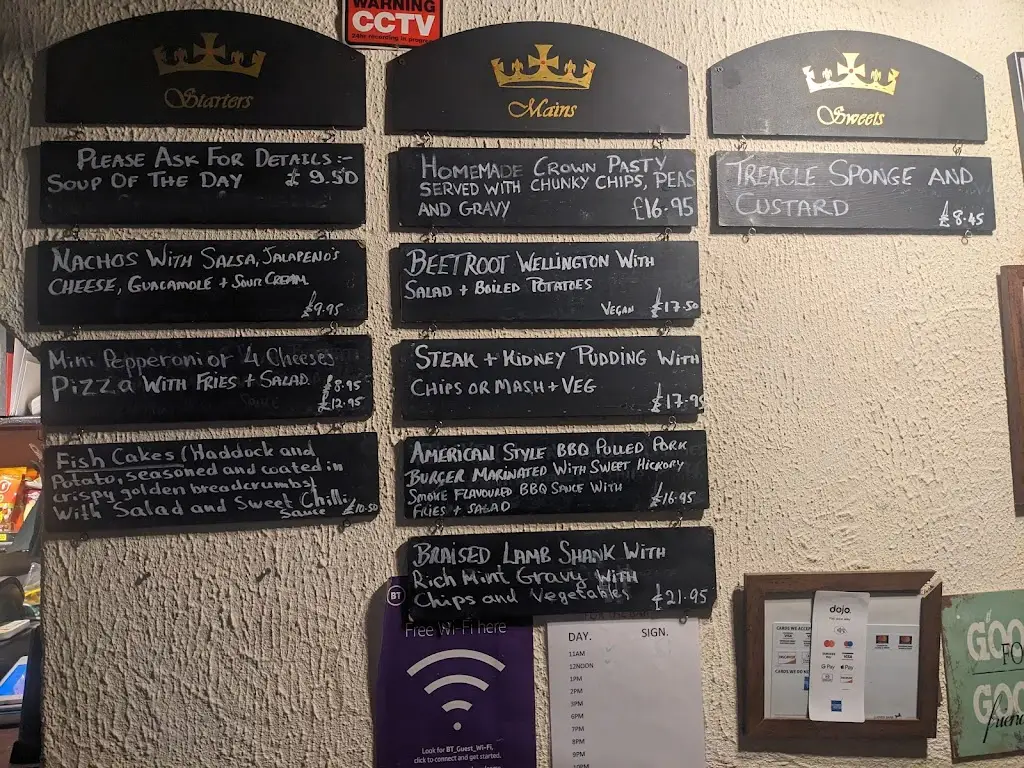 WARNING
CCTV
24hr recording in progress
Starters
PLEASE ASK FOR DETAILS:-
SOUP OF THE DAY £9.50
NACHOS WITH SALSA, JALAPENO'S
CHEESE, GUACAMOLE + SOUR CREAM
£9.95
Mini Pepperoni or 4 Cheeses
Pizza WITH FRIES + SALAD
£8.95
£12.95
Fish Cakes (Haddock and
Potato, seasoned and coated in
crispy golden breadcrumbs)
With Salad and Sweet Chilli
Sauce £10.50
Mains
HOMEMADE CROWN PASTY
SERVED WITH CHUNKY CHIPS, PEAS
AND GRAVY £16.95
BEETROOT WELLINGTON WITH
SALAD + BOILED POTATOES
VEGAN £17.50
STEAK + KIDNEY PUDDING WITH
CHIPS OR MASH + VEG
£17.95
AMERICAN STYLE BBQ PULLED PORK
BURGER MARINATED WITH SWEET HICKORY
SMOKE FLAVOURED BBQ SAUCE WITH
FRIES + SALAD £16.95
BRAISED LAMB SHANK WITH
Rich Mint Gravy WITH
Chips and Vegetables £21.95
Sweets
TREACLE SPONGE AND
CUSTARD £8.45
BT
Free Wi-Fi here
Look for BT_Guest_Wi-Fi,
click to connect and get started.
DAY. SIGN.
11AM
12NOON
1PM
2PM
3PM
6PM
7PM
8PM
9PM
10PM
CARDS WE ACCEPT
dojo.
VISA
G Pay Pay
GOO
FO
GOO
friend